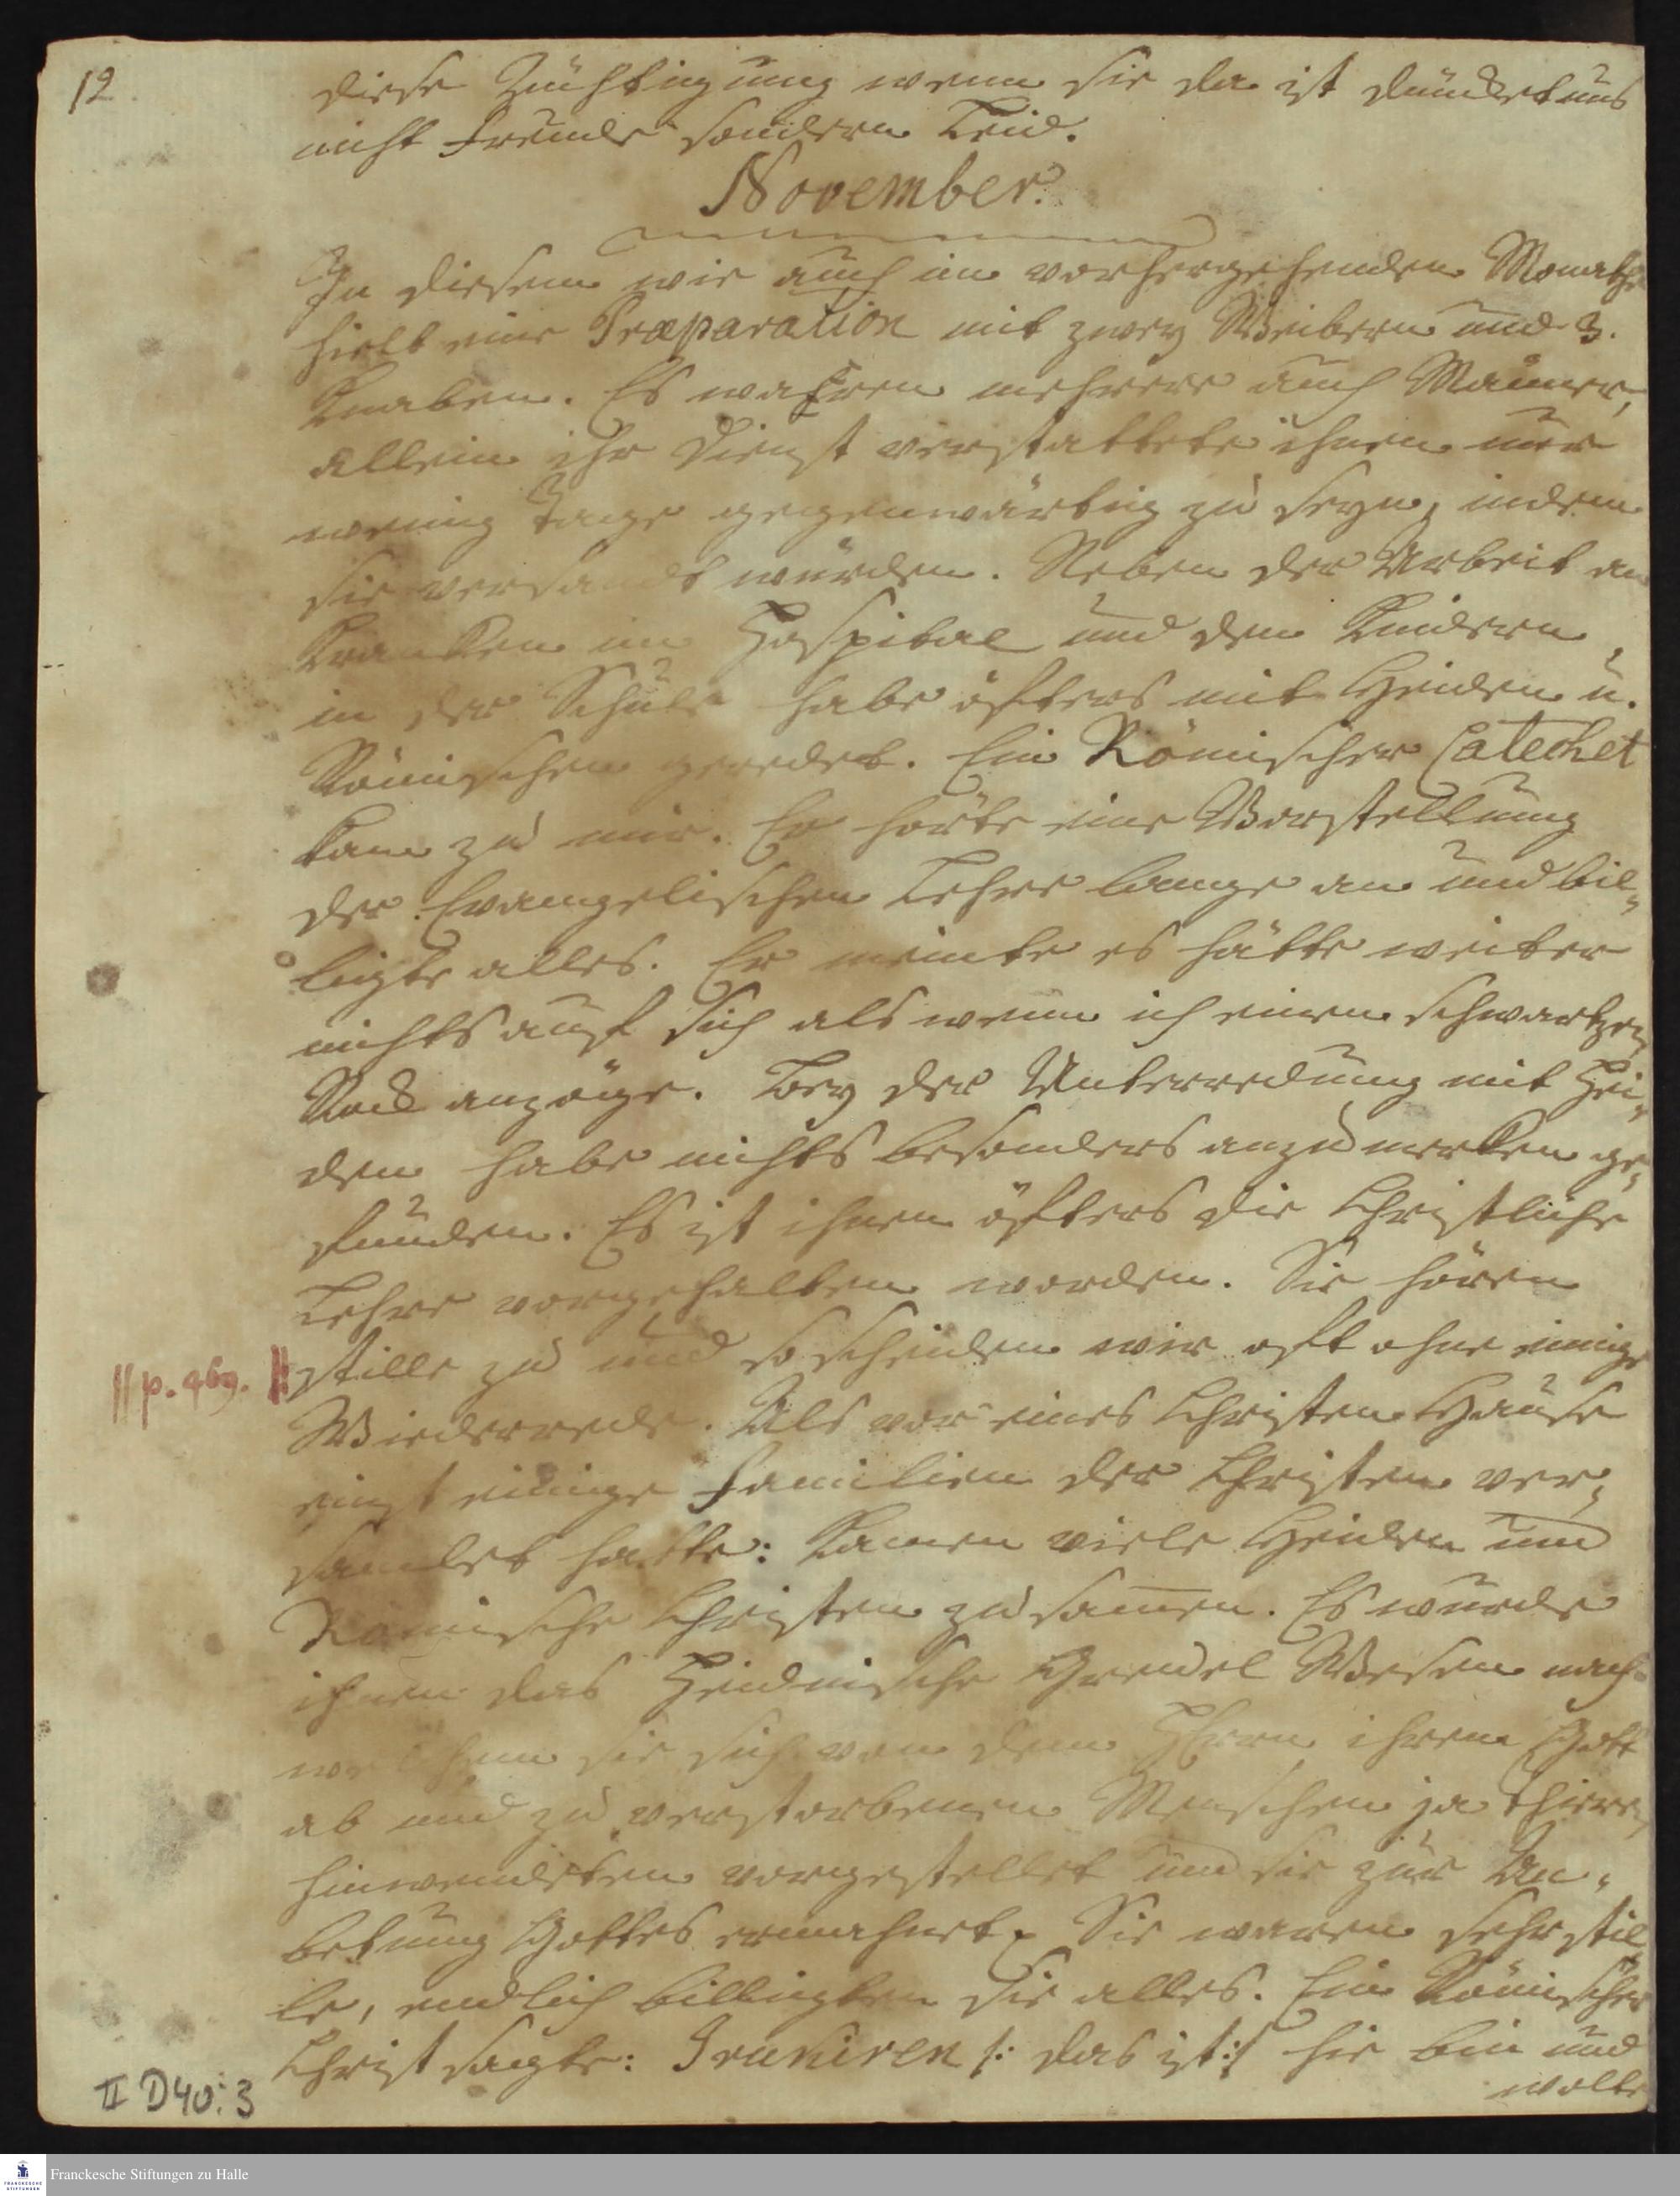 12
diese Züchtigung wenn sie da ist düncket uns
nicht Freude sondern Leid.
November.
In diesem wie auch im vorhergehenden Monathe
hielt eine Præparation mit zwey Weibern und 3.
Knaben. Es wahren mehrere auch Männer,
allein ihr Dienst verstattete ihnen nur
wenig Tage gegenwärtig zu seyn, indem
sie versandt wurden. Neben der Arbeit an
Krancken im Hospital und den Kindern
in der Schule habe öfters mit Heiden u.
Römischen geredet. Ein Römischer Catechet
kam zu mir. Er hörte eine Vorstellung
der Evangelischen Lehre lange an und bil-
ligte alles. Er meinte es hätte weiter
nichts auf sich als wenn ich einen schwartzen
Rock anzöge. Bey der Unterredung mit Hei-
den habe nichts besonders anzumerken ge-
funden. Es ist ihnen öfters die Christliche
Lehre vorgehalten worden. Sie hören
|| p. 469. || stille zu und so scheiden wir oft ohne einige
Wiederrede. Als vor eines Christen Hause
einst einige Familien der Christen ver-
samlet hatte: kamen viele Heiden und
Römische Christen zusamen. Es wurde
ihnen das Heidnische Greuel Wesen nach
welchem sie sich von dem HErrn ihrem Gott
ab und zu verstorbenen Menschen ja Thieren
hinwendeten vorgestellet und sie zur An-
betung Gottes ermahnet. Sie waren sehr stil-
le, endlich billigten sie alles. Ein Römischer
Christ sagte: /: das ist :/ hie bin und
wolte
II D40:3
Franckesche Stiftungen zu Halle